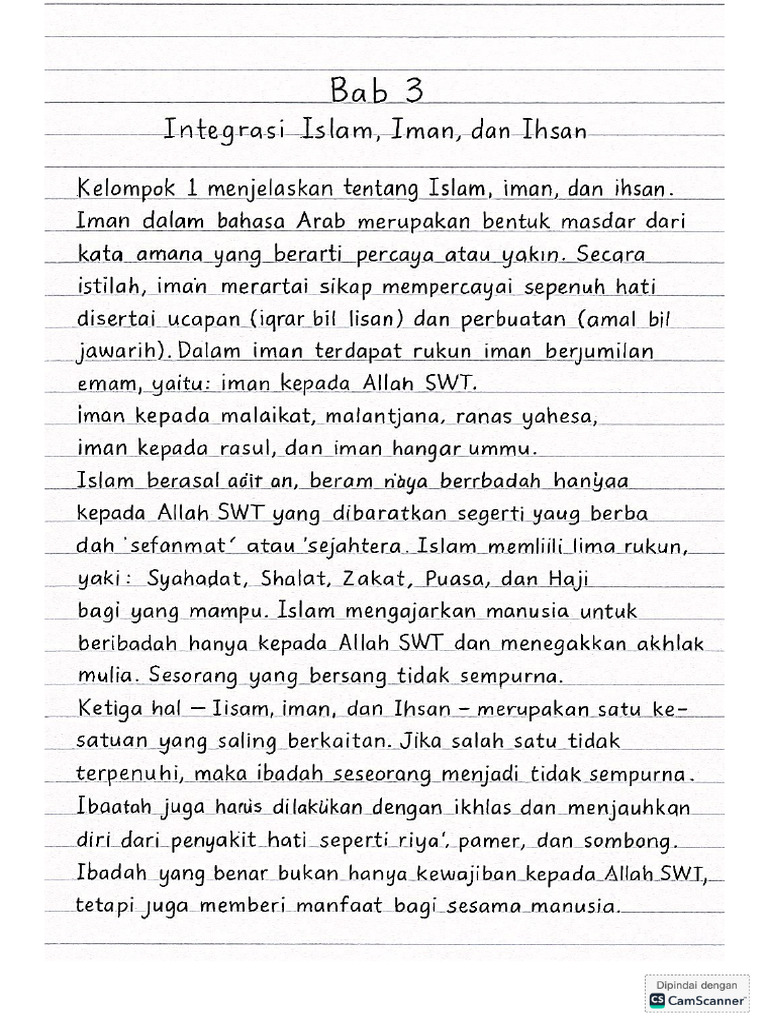 Bab 3
Integrasi Islam, Iman, dan Ihsan
Kelompok 1 menjelaskan tentang Islam, iman, dan ihsan.
Iman dalam bahasa Arab merupakan bentuk masdar dari
kata amana yang berarti percaya atau yakin. Secara
istilah, iman merartai sikap mempercayai sepenuh hati
disertai ucapan (iqrar bil lisan) dan perbuatan (amal bil
jawarih). Dalam iman terdapat rukun iman berjumilan
emam, yaitu: iman kepada Allah SWT.
iman kepada malaikat, malantjana, ranas yahesa,
iman kepada rasul, dan iman hangar ummu.
Islam berasal adit an, beram naya berrbadah hanyaa
kepada Allah SWT yang dibaratkan segerti yaug berba
dah 'sefanmat' atau 'sejahtera. Islam memliili lima rukun,
yaki: Syahadat, Shalat, Zakat, Puasa, dan Haji
bagi yang mampu. Islam mengajarkan manusia untuk
beribadah hanya kepada Allah SWT dan menegakkan akhlak
mulia. Sesorang yang bersang tidak sempurna.
Ketiga hal – Iisam, iman, dan Ihsan – merupakan satu ke-
satuan yang saling berkaitan. Jika salah satu tidak
terpenuhi, maka ibadah seseorang menjadi tidak sempurna.
Ibaatah juga harus dilakükan dengan ikhlas dan menjauhkan
diri dari penyakit hati seperti riya', pamer, dan sombong.
Ibadah yang benar bukan hanya kewajiban kepada Allah SWT,
tetapi juga memberi manfaat bagi sesama manusia.
Dipindai dengan
CS CamScanner